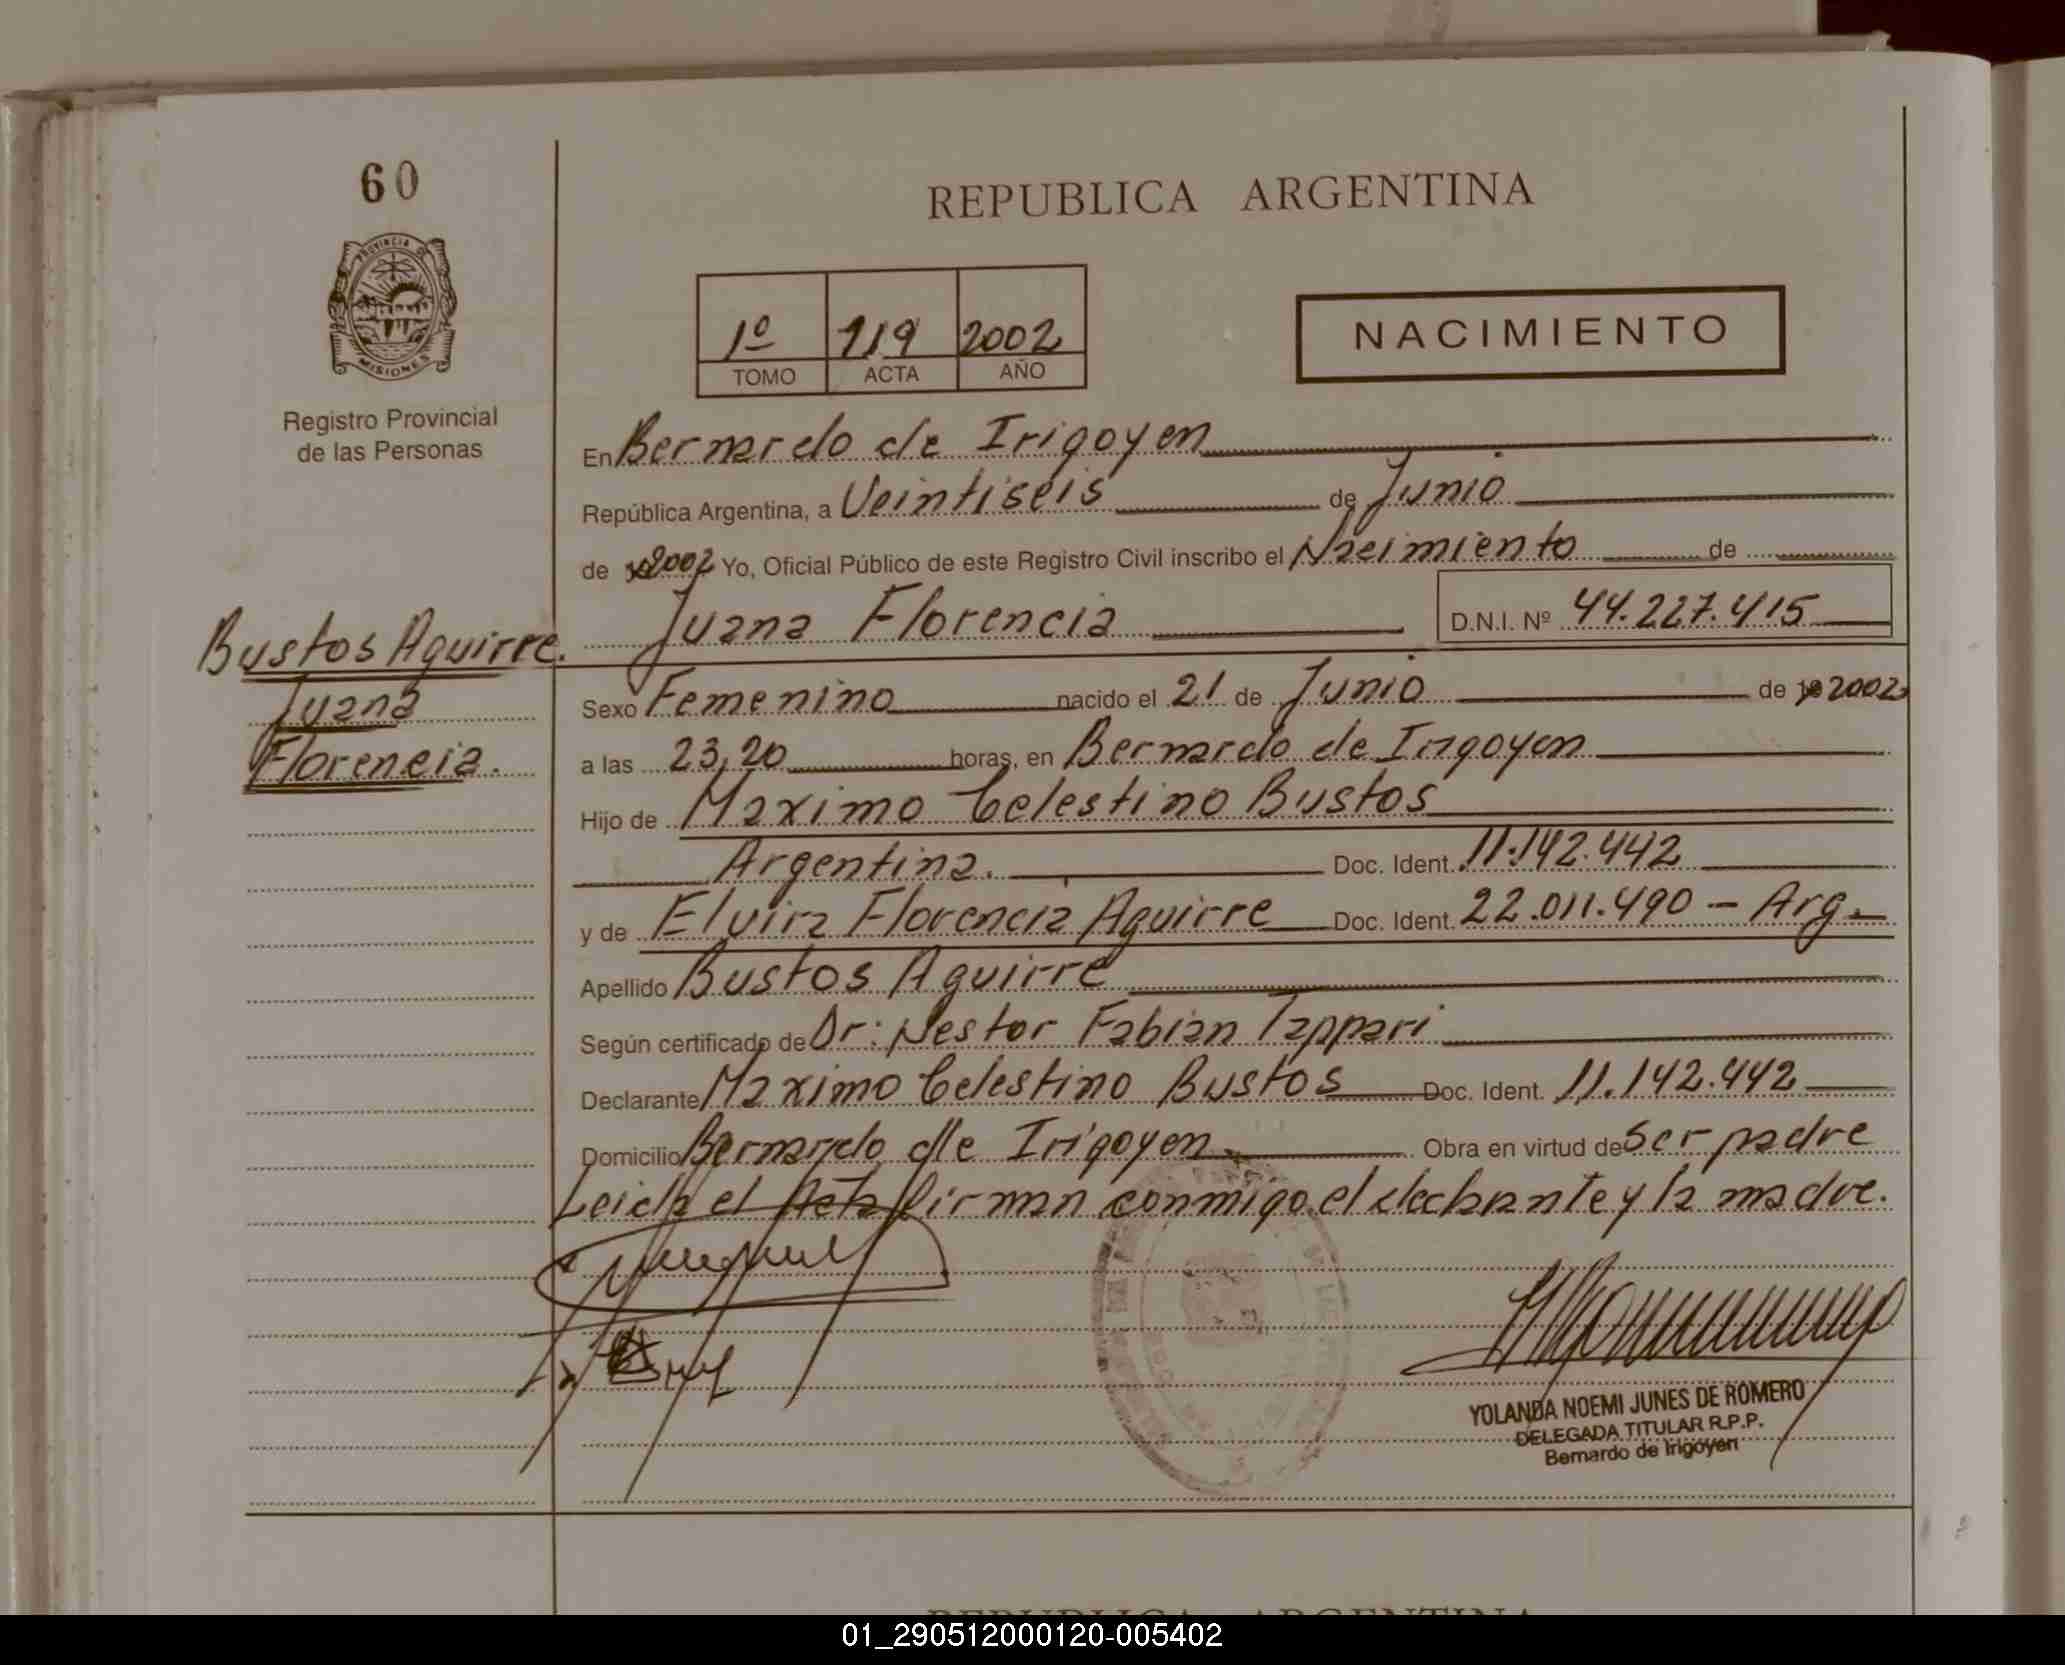 60
PROVINCIA DE
MISIONES
Registro Provincial
de las Personas
REPUBLICA ARGENTINA
1º 119 2002
TOMO ACTA AÑO
NACIMIENTO
En Bernardo de Irigoyen
República Argentina, a Veintiseis de Junio
de 2002 Yo, Oficial Público de este Registro Civil inscribo el Nacimiento de
Juana Florencia D.N.I. Nº 44.227.415
Bustos Aguirre.
Juana
Florencia.
Sexo Femenino nacido el 21 de Junio de 19 2002
a las 23,20 horas, en Bernardo de Irigoyen
Hijo de Maximo Celestino Bustos
Argentina. Doc. Ident. 11.142.442
y de Elvira Florencia Aguirre Doc. Ident. 22.011.490 - Arg.
Apellido Bustos Aguirre
Según certificado de Dr: Nestor Fabian Tappari
Declarante Maximo Celestino Bustos Doc. Ident. 11.142.442
Domicilio Bernardo de Irigoyen Obra en virtud de ser padre
Leida el Acta firman conmigo el declarante y la madre.
YOLANDA NOEMI JUNES DE ROMERO
DELEGADA TITULAR R.P.P.
Bernardo de Irigoyen
REPUBLICA ARGENTINA
01_290512000120-005402